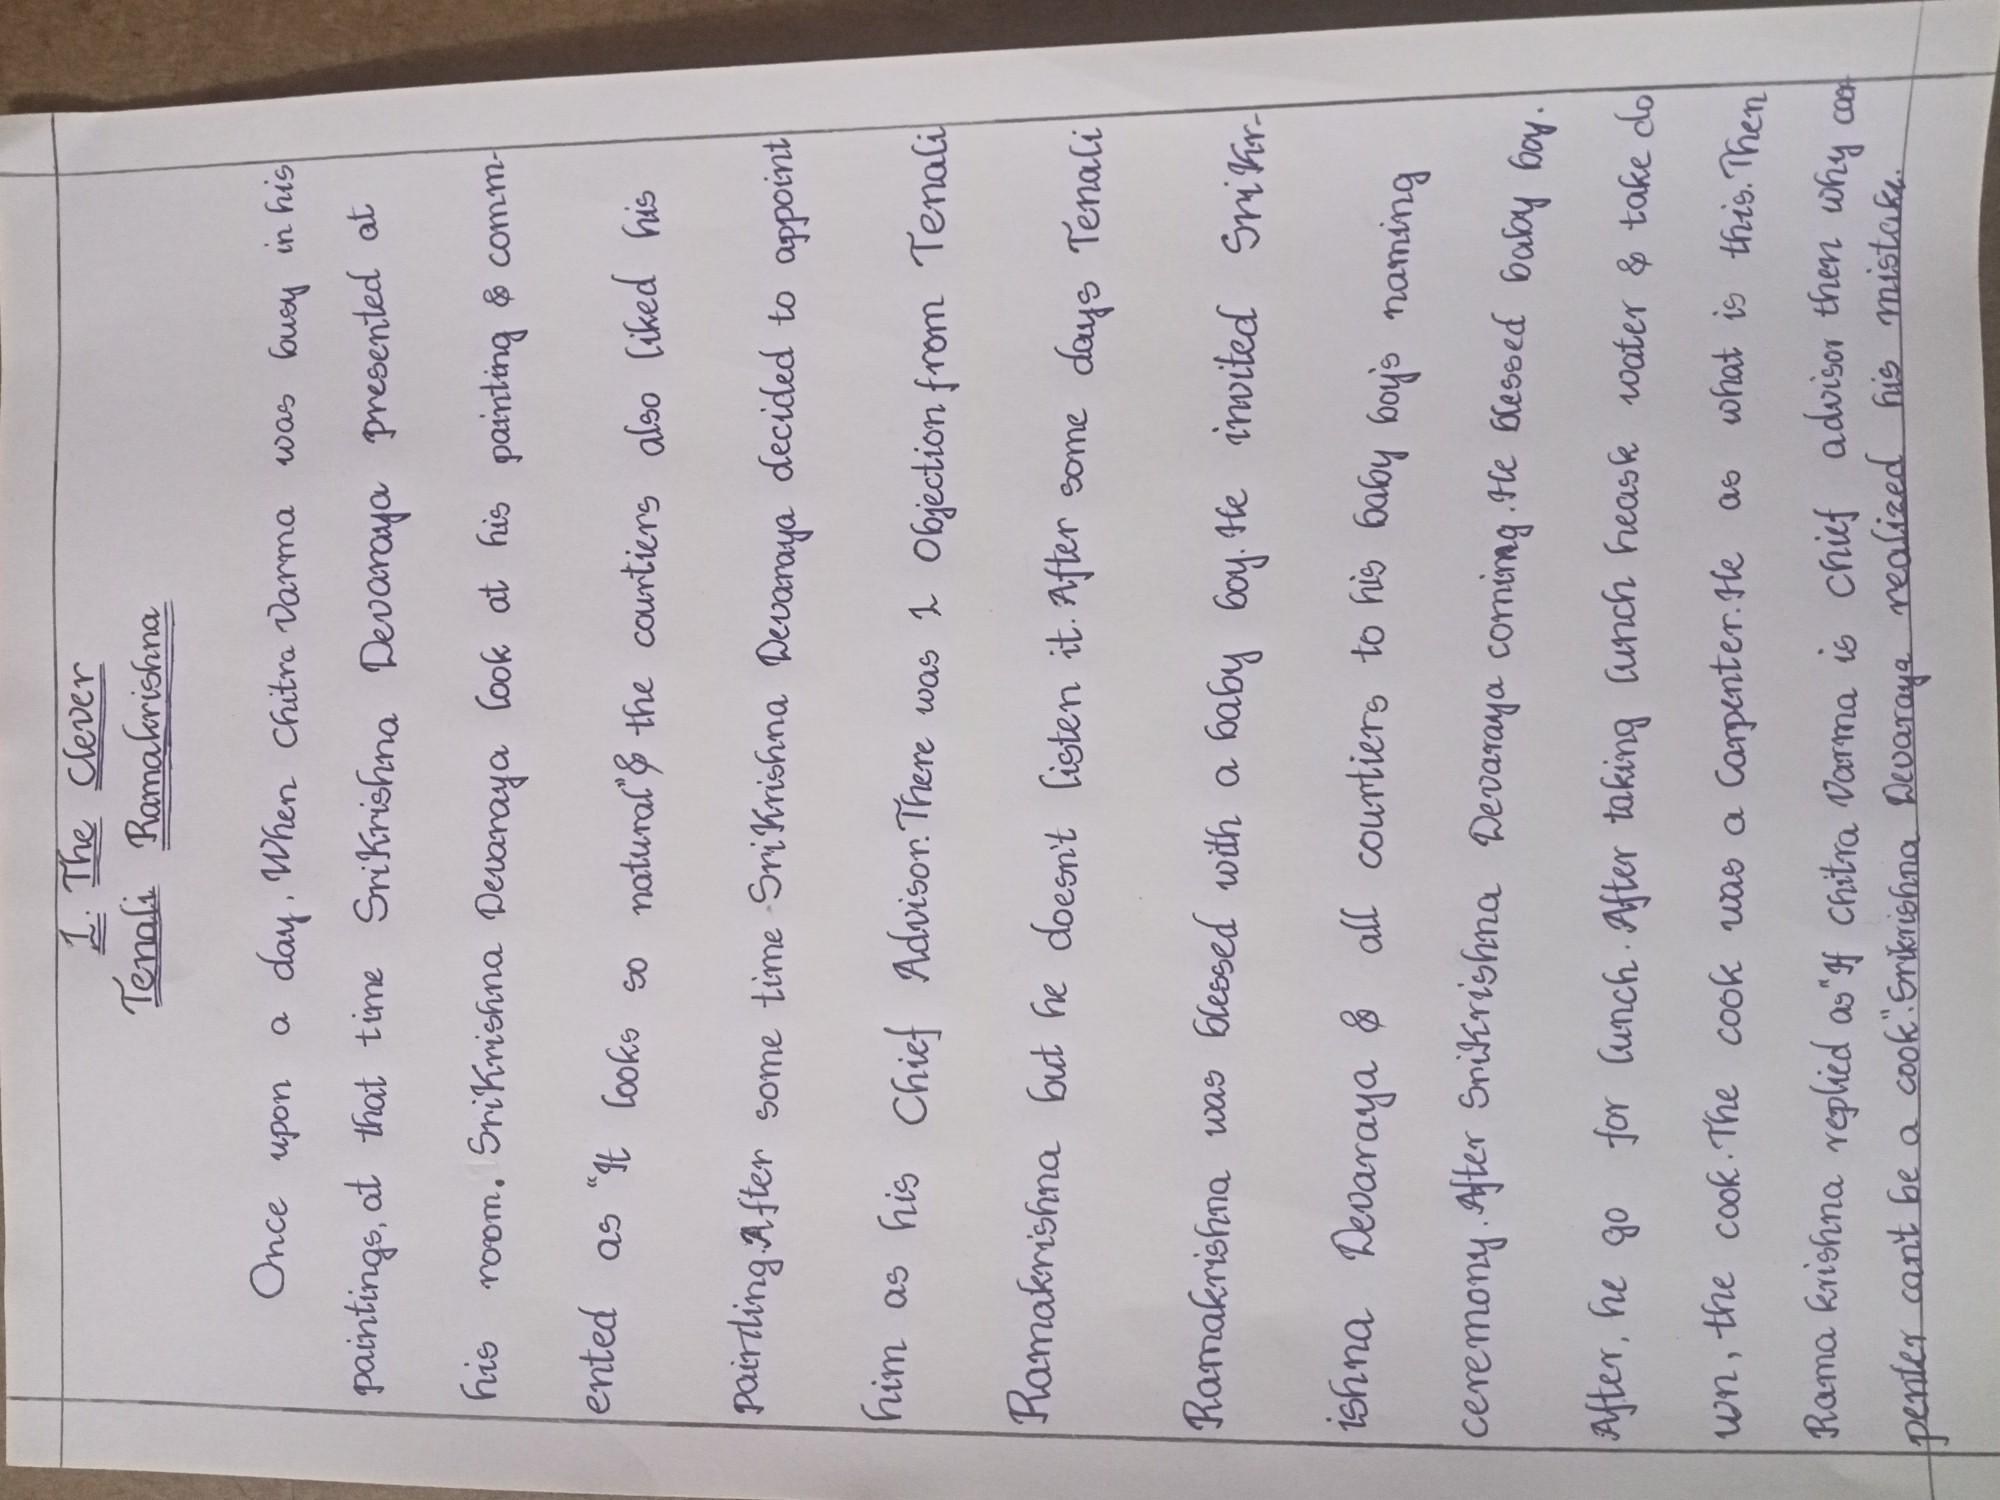 1. The Clever
Tenali Ramakrishna
Once upon a day, When Chitra Varma was busy in his
paintings, at that time SriKrishna Devaraya presented at
his room. SriKrishna Devaraya look at his painting & comm-
ented as "It looks so natural" & the countiers also liked his
Painting. After some time SriKrishna Devaraya decided to appoint
him as his Chief Advisor. There was 1 Objection from Tenali
Ramakrishna but he doesn't listen it. After some days Tenali
Ramakrishna was blessed with a baby boy. He invited SriKr-
ishna Devaraya & all countiers to his baby boy's naming
ceremony. After SriKrishna Devaraya coming. He blessed baby boy.
After, he go for lunch. After taking lunch heask water & take do
wn, the cook. The cook was a Carpenter. He as what is this. Then
Rama krishna replied as "If Chitra Varma is Chief advisor then why car
penter can't be a cook". Srikrishna Devaraya realized his mistake.